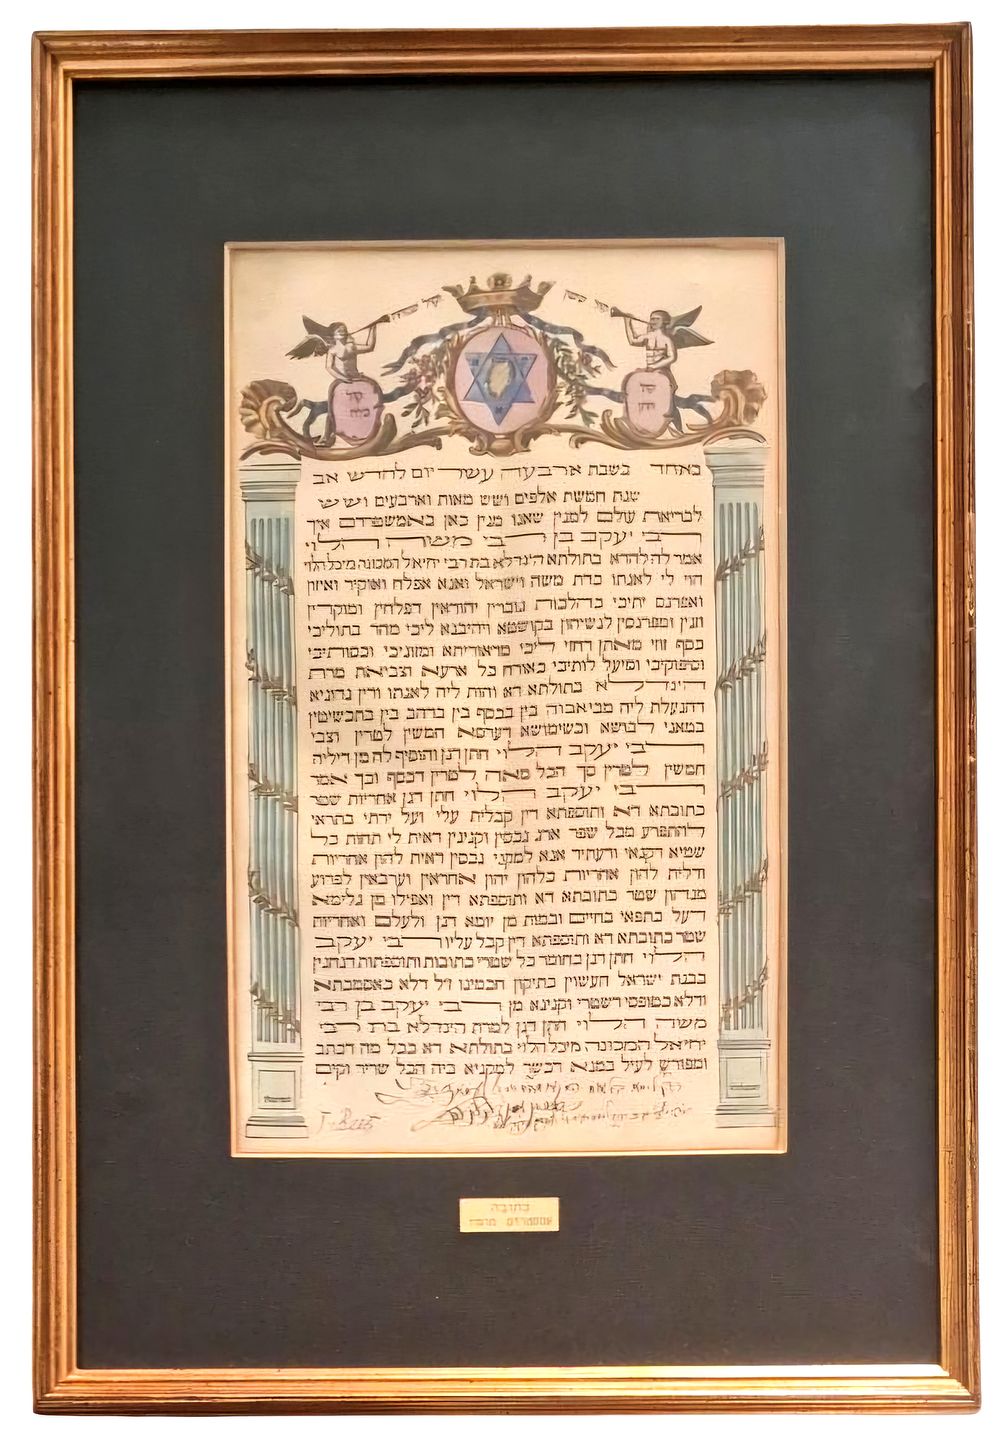 קול ששון
קול שמחה
קול חתן
קול כלה
באחד בשבת ארבעה עשר יום לחדש אב
שנת חמשת אלפים ושש מאות וארבעים ושש
לבריאת עולם למנין שאנו מנין כאן באמשטרדם איך
רבי יעקב בן רבי משה הלוי
אמר לה להדא בתולתא הינדלא בת רבי יחיאל המכונה מיכל הלוי
הוי לי לאנתו כדת משה וישראל ואנא אפלח ואוקיר ואיזון
ואפרנס יתיכי כהלכות גוברין יהודאין דפלחין ומוקרין
וזנין ומפרנסין לנשיהון בקושטא ויהיבנא ליכי מהר בתוליכי
כסף זוזי מאתן דחזי ליכי מדאוריתא ומזוניכי וכסותיכי
וסיפוקיכי ומיעל לותיכי כאורח כל ארעא וצביאת מרת
הינדלא בתולתא דא והות ליה לאנתו ודין נדוניא
דהנעלת ליה מבי אבוה בין בכסף בין בדהב בין בתכשיטין
במאני לבושא ובשימושא דערסא חמשין לטרין וצבי
רבי יעקב הלוי חתן דנן והוסיף לה מן דיליה
חמשין לטרין סך הכל מאה לטרין דכסף וכך אמר
רבי יעקב הלוי חתן דנן אחריות שטר
כתובתא דא ותוספתא דין קבלית עלי ועל ירתי בתראי
להתפרע מכל שפר ארג נכסין וקנינין דאית לי תחות כל
שמיא דקנאי ודעתיד אנא למקני נכסין דאית להון אחריות
ודלית להון אחריות כלהון יהון אחראין וערבאין לפרוע
מנהון שטר כתובתא דא ותוספתא דין ואפילו מן גלימא
דעל כתפאי בחיים ובמות מן יומא דנן ולעלם ואחריות
שטר כתובתא דא ותוספתא דין קבל עליו רבי יעקב
הלוי חתן דנן כחומר כל שטרי כתובות ותוספתות דנהגין
בבנת ישראל העשוין כתיקון חכמינו ז״ל דלא כאסמכתא
ודלא כטופסי דשטרי וקנינא מן רבי יעקב בן רבי
משה הלוי חתן דנן למרת הינדלא בת רבי
יחיאל המכונה מיכל הלוי בתולתא דא בכל מה דכתב
ומפורש לעיל במנא דכשר למקניא ביה הכל שריר וקים
כתובה